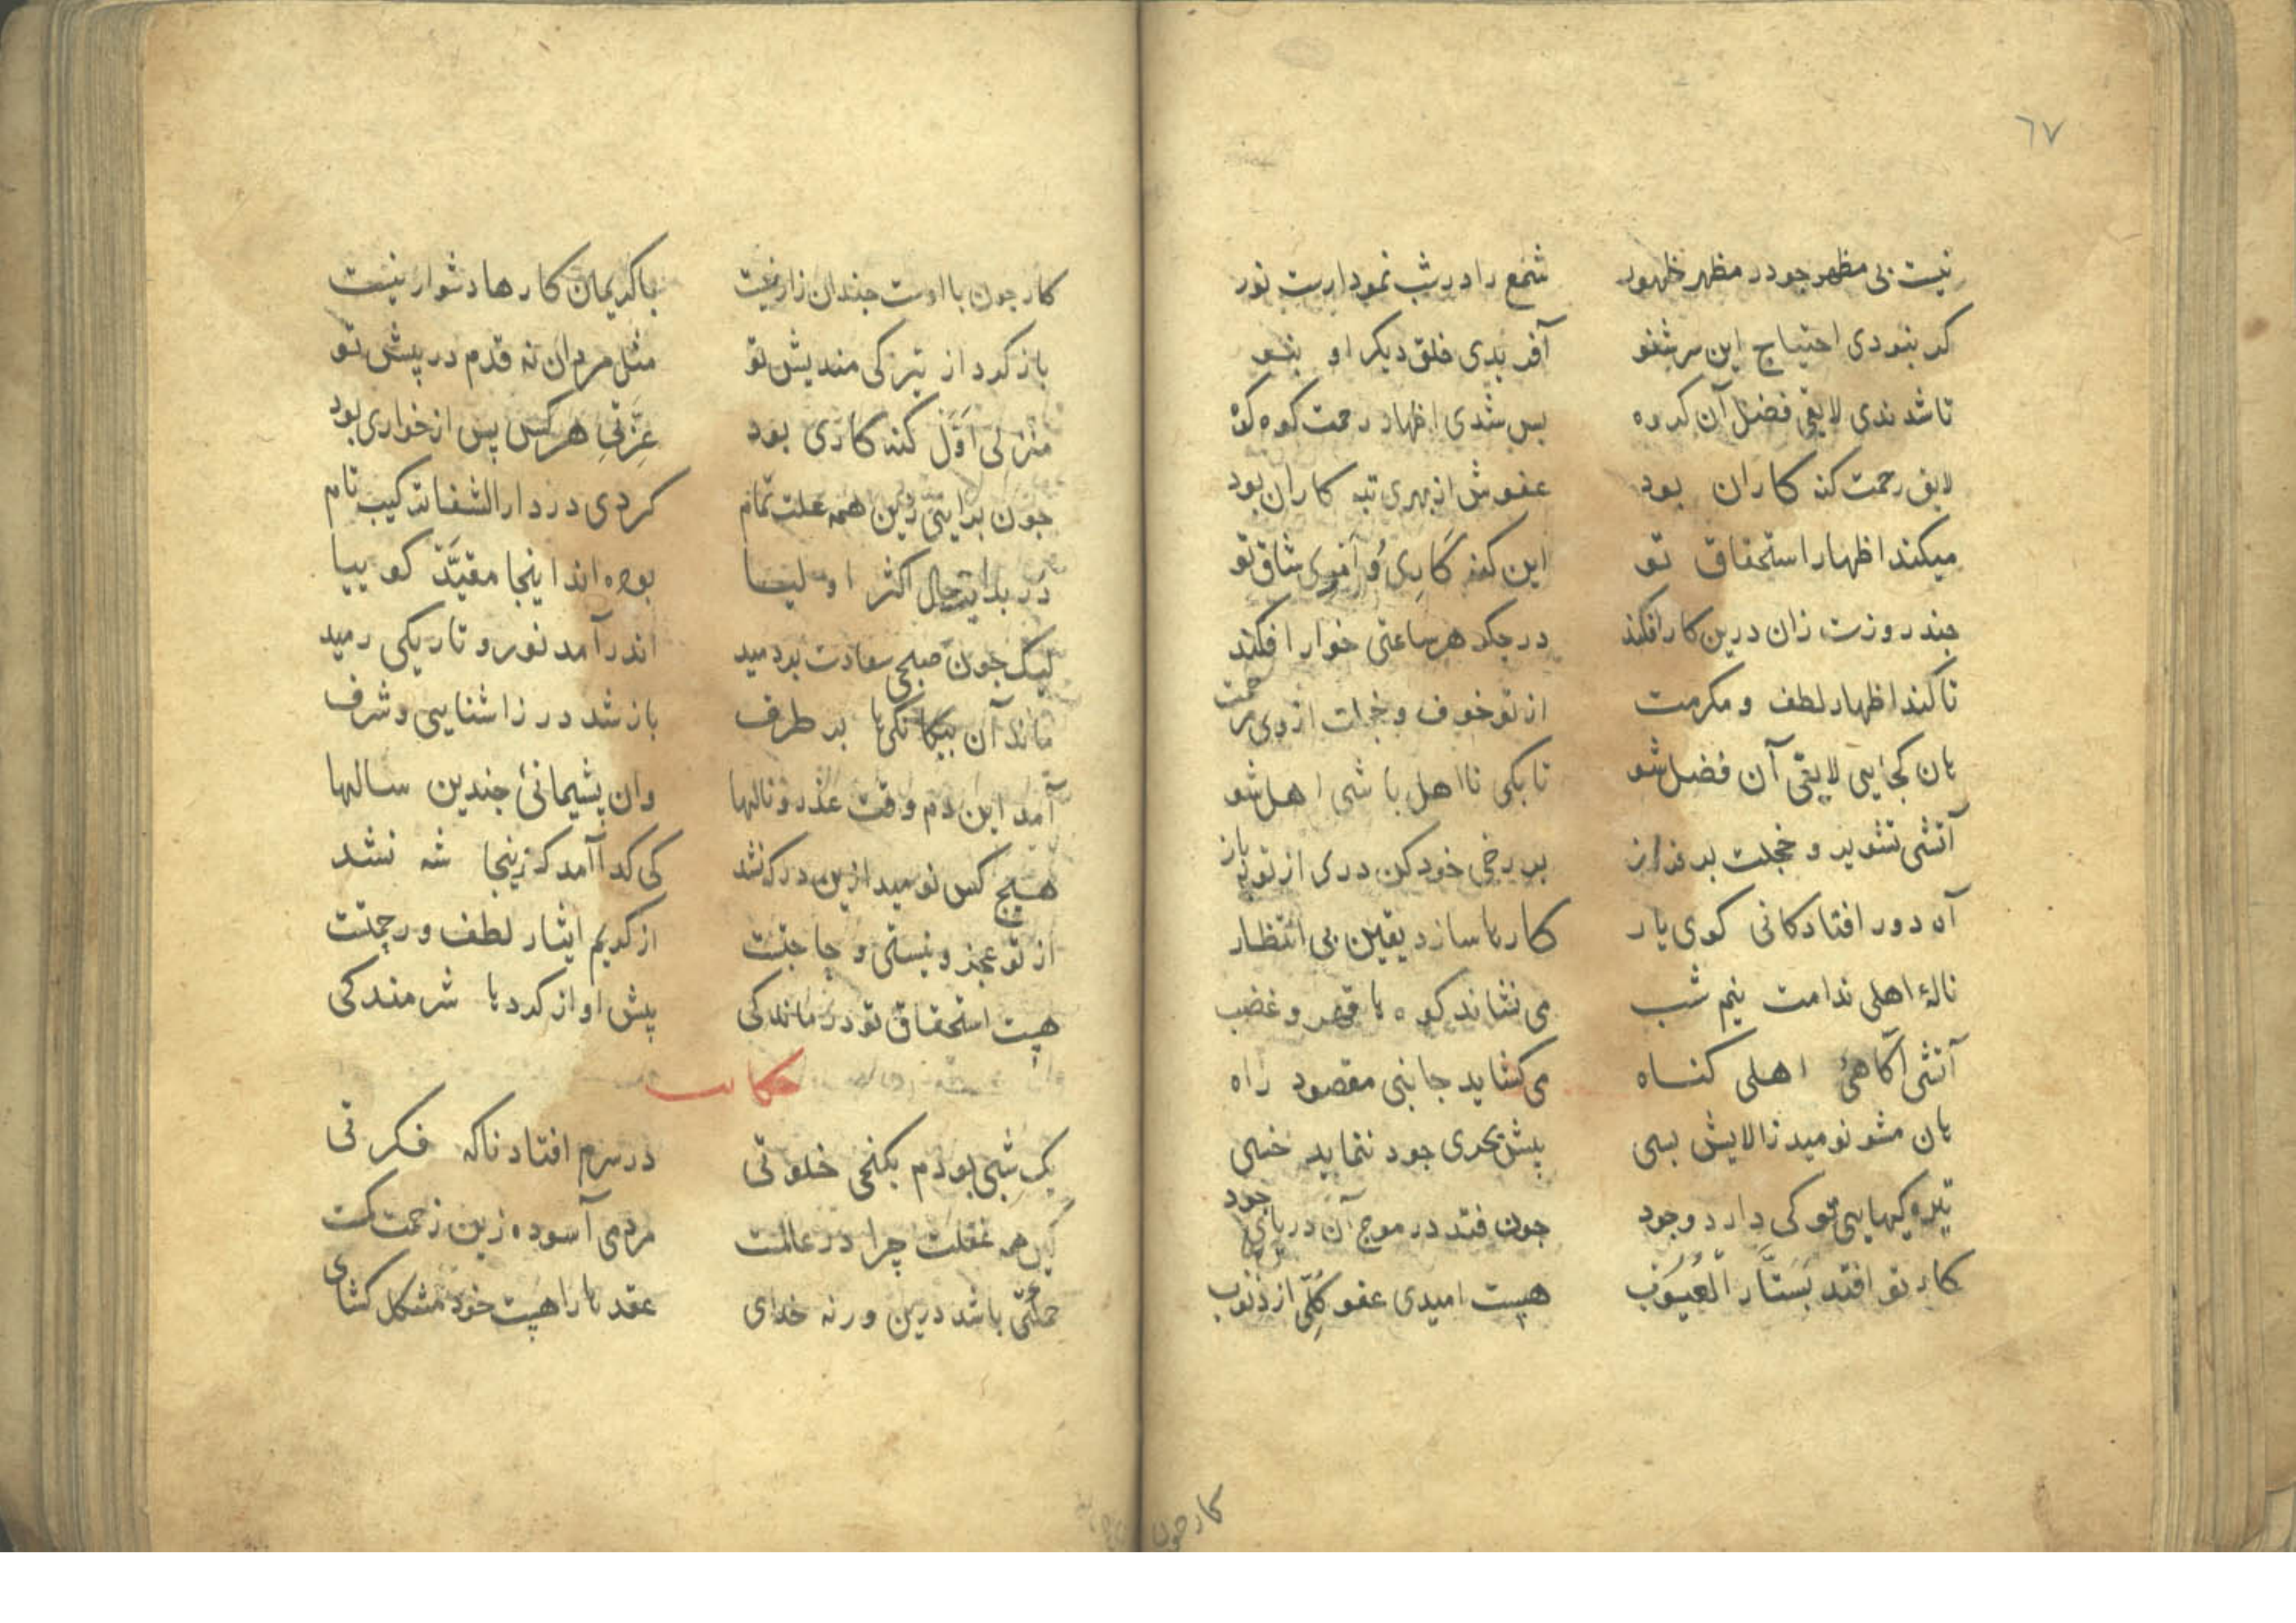 ٦٧
نیست بی مظهر جود در مظهر ظهور شمع را در شب نمودارست نور
کر بنودی احتیاج این سر شنو آفریدی خلق دیکر او بنو
تا شدندی لایقی فضل آن کروه بس شدی اظهار رحمت کوه کوه
لایق رحمت کنه کاران بود عفوش از بهری تبه کاران بود
میکند اظهار استحقاق تو این کنه کاری و
چند روزت زان درین کار افکند در جکر هر ساعتی خوار افکند
تا کند اظهار لطف و مکرمت از تو خوف و خجلت از وی مرحمت
هان کجایی لایقی آن فضل شو تا بکی نا اهل باشی اهل شو
آتشی تشویر و خجلت بر فراز بر رخی خود کن دری از توبه باز
آه دور افتادکانی کوی یار کارها سازد یقین بی انتظار
نالۀ اهلی ندامت نیم شب می نشاند کوه ها قهر و غضب
آتشی آکاهئ اهلی کناه می کشاید جانبی مقصود راه
هان مشو نومید زالایش بسی پیش بحری جود ننماید خسی
تیره کیهایی تو کی دارد وجود جون فتد در موج آن دریای جود
کار تو افتد بستار العیوب هیست امیدی عفو کلی از ذنوب
کار جون
کار جون با اوست جندان زار نیست با کریمان کارها دشوار نیست
باز کرد از تیزکی مندیش تو مثل مردان نه قدم در پیش تو
منزلی اول کنه کاری بود عزتی هر کس پس از خواری بود
جون برایتی زین همه علت تمام کردی در دار الشفا
در بدایت حال اکثر اولیا بوده اند اینجا مقید کو بیا
لیک جون صبحی سعادت بردمید اندر آمد نور و تاریکی رمید
ماند آن بیکانکیها بر طرف باز شد در ز اشنایی و شرف
آمد این دم وقت عذر و نالها وان پشیمانئ جندین سالها
هیج کس نومید ازین در کر نشد کی کدا آمد کزینجا شه نشد
از تو عجز و نیستی و حاجتست از کریم ایثار لطف و رحمتست
هیست استحقاق تو درماندکی پیش او از کرد ها شرمندکی
حکایت
یک شبی بودم بکنجی خلوتی در سرم افتاد ناکه فکرتی
کین همه غفلت چرا در عالمت مردمی آسوده زین زحمت کمت
حکمتی باشد درین ور نه خدای عقدها را هیست خود مشکل کشای